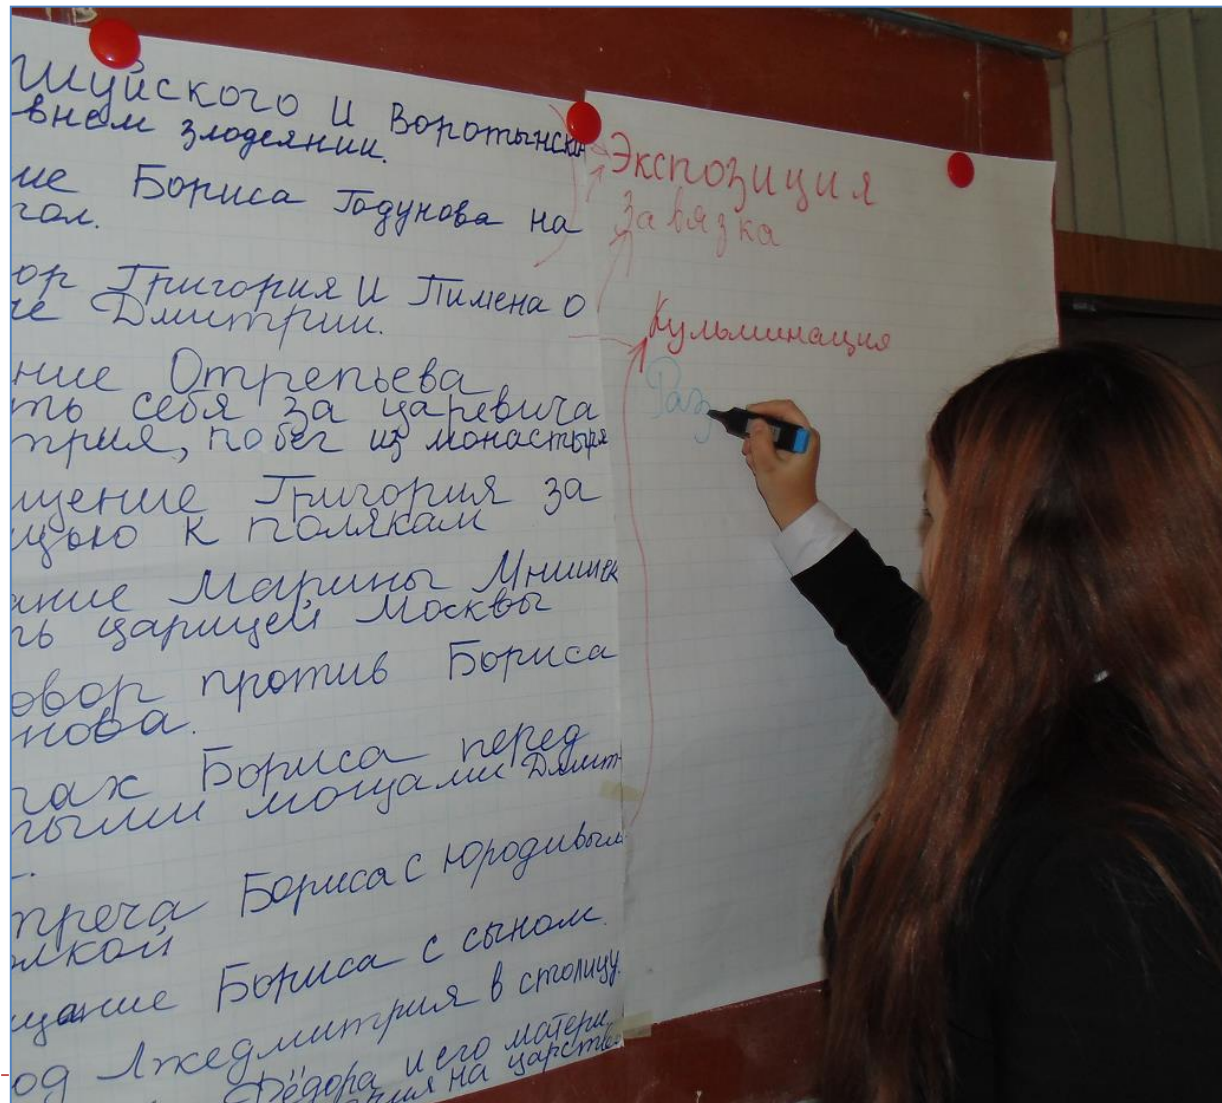 шуйского и Воротынско
внем злодеянии.
ие Бориса Годунова на
гол.
ор Григория и Пимена о
че Дмитрии.
ние Отрепьева
ть себя за царевича
трия, побег из монастыря
щение Григория за
щью к полякам
ание Марины Мнишек
ть царицей Москвы
овор против Бориса
нова.
рах Бориса перед
тыми мощами Дмит
треча Бориса с юродивым
олкой
щание Бориса с сыном.
од Лжедмитрия в столицу.
Фёдора и его матери
на царство
Экспозиция
Завязка
Кульминация
Раз